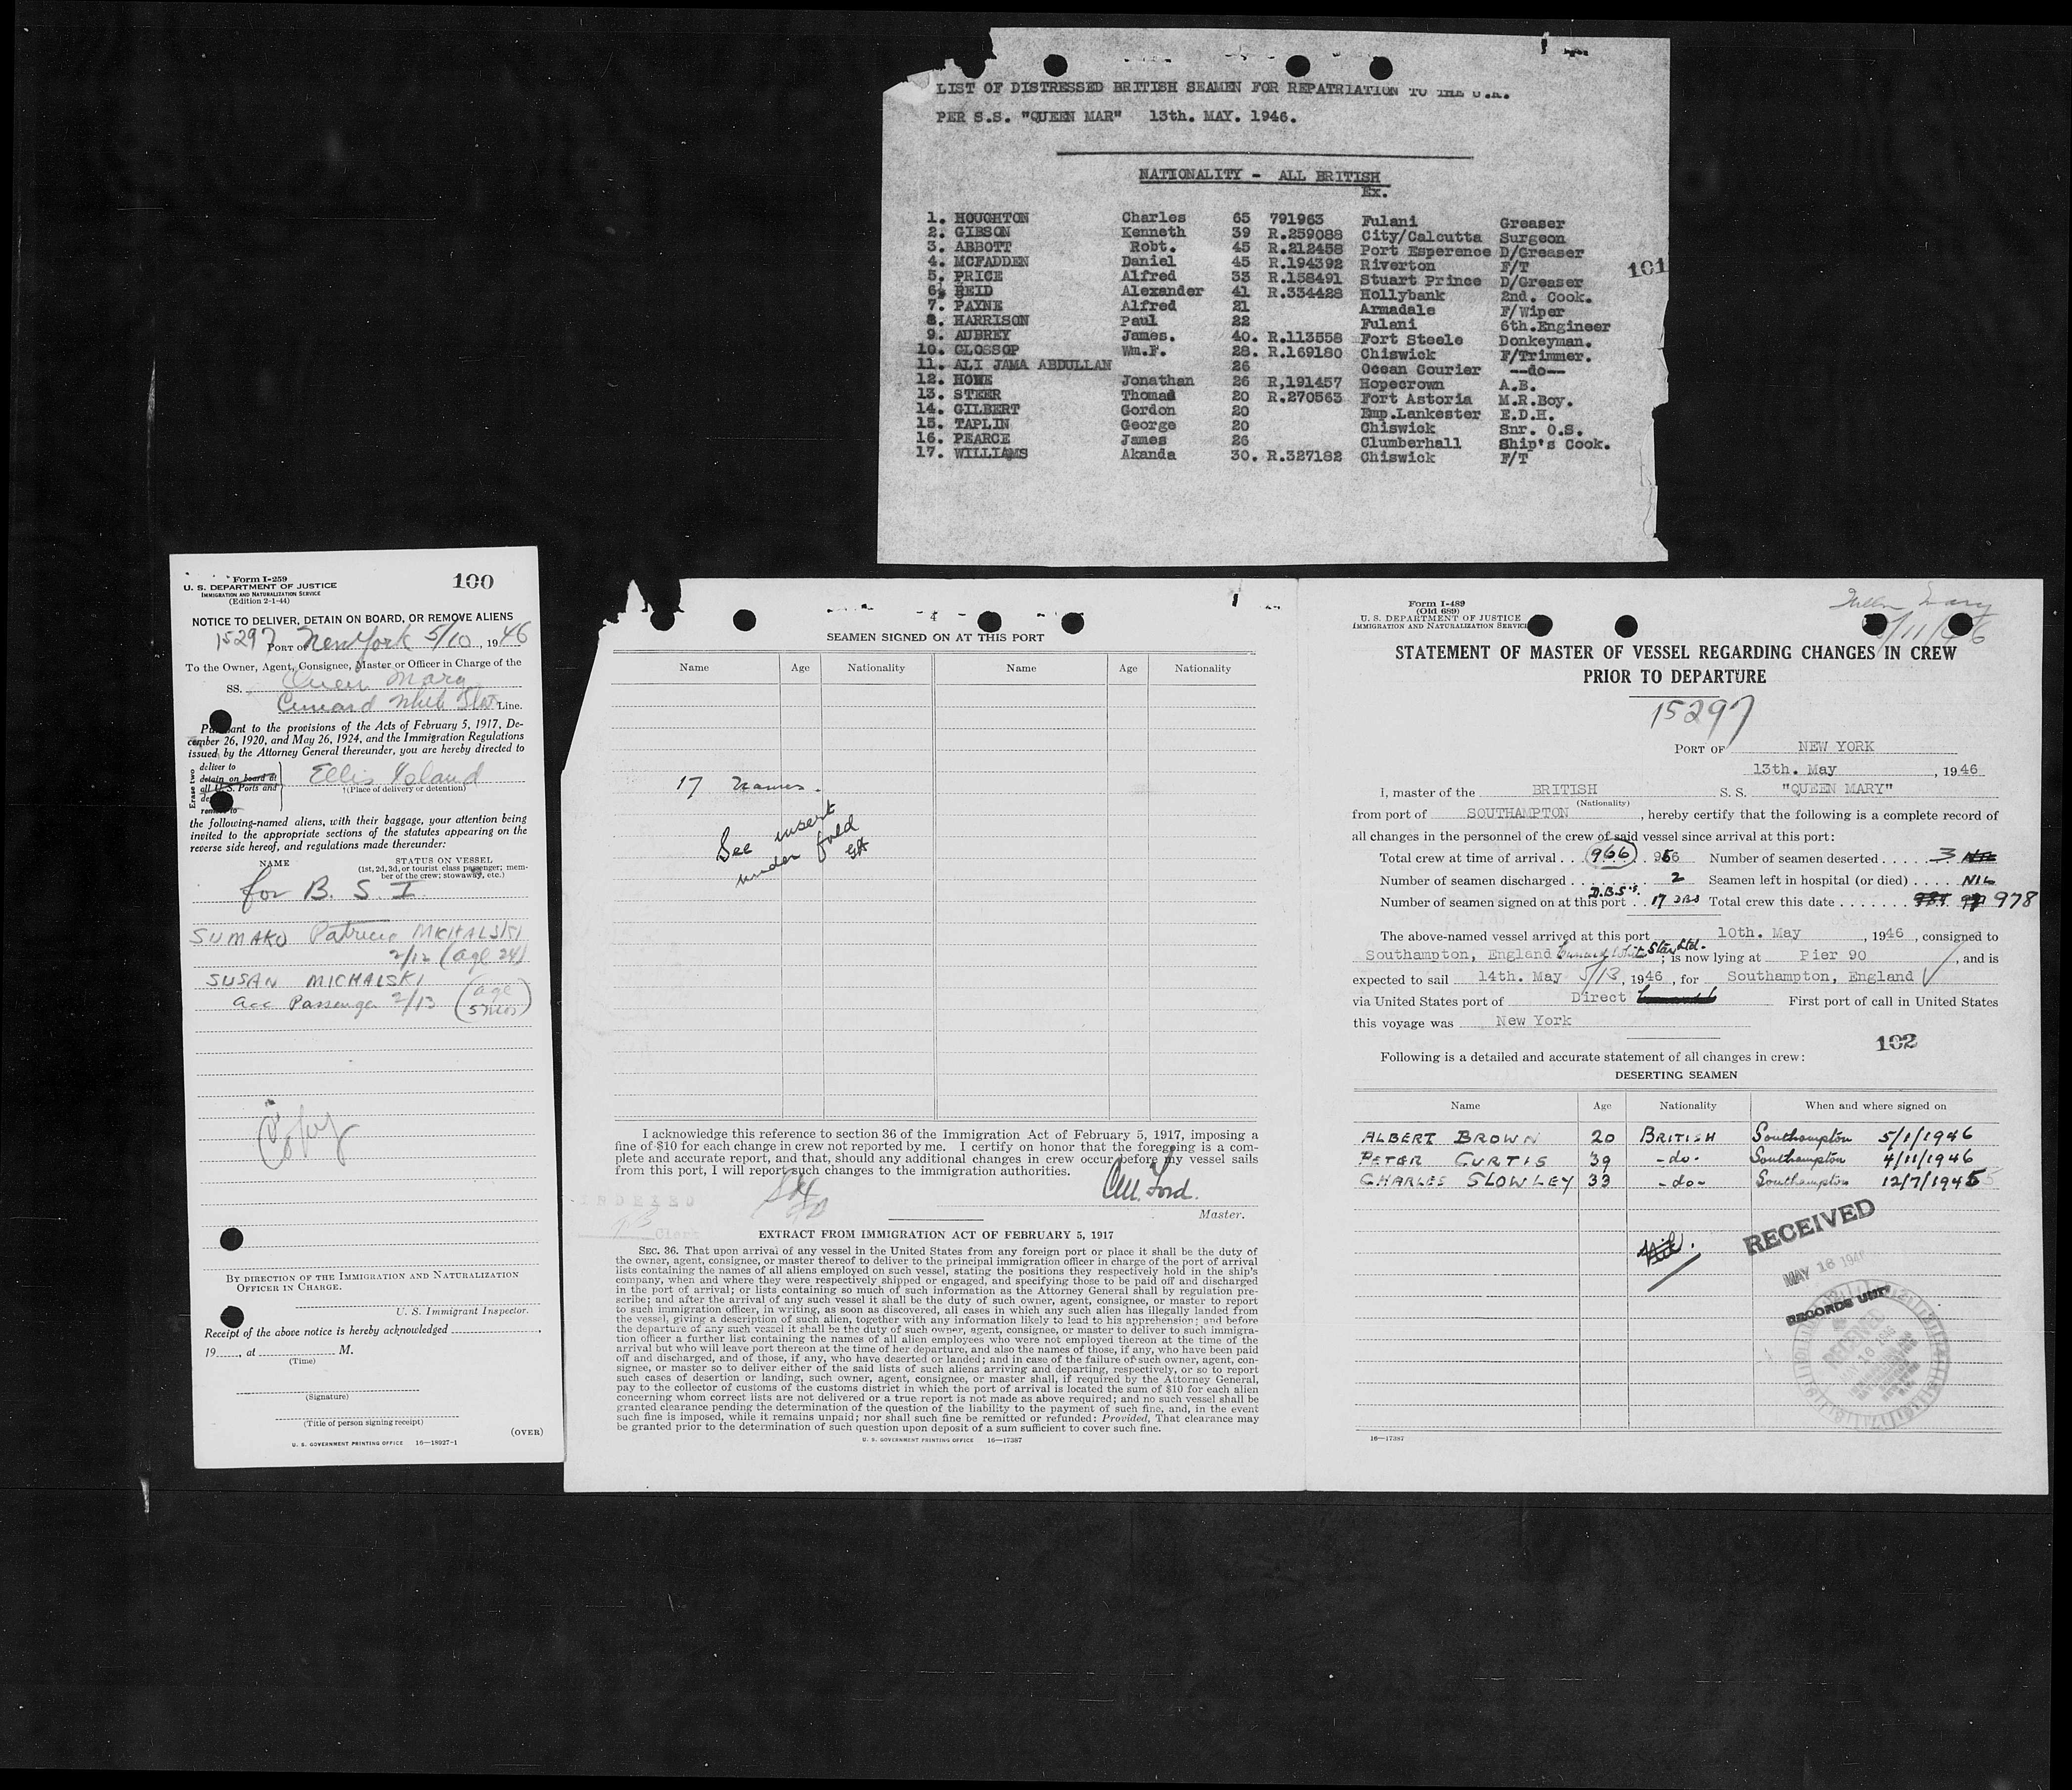 LIST OF DISTRESSED BRITISH SEAMEN FOR REPATRIATION TO THE U.K.
PER S.S. "QUEEN MAR" 13th. MAY. 1946.
NATIONALITY - ALL BRITISH
Ex.
1. HOUGHTON Charles 65 791963 Fulani Greaser
2. GIBSON Kenneth 39 R.259088 City/Calcutta Surgeon
3. ABBOTT Robt. 45 R.212458 Port Esperence D/Greaser
4. MCFADDEN Daniel 45 R.194392 Riverton F/T
5. PRICE Alfred 33 R.158491 Stuart Prince D/Greaser
6. REID Alexander 41 R.334428 Hollybank 2nd. Cook.
7. PAYNE Alfred 21 Armadale F/Wiper
8. HARRISON Paul 22 Fulani 6th.Engineer
9. AUBREY James. 40. R.113558 Fort Steele Donkeyman.
10. GLOSSOP Wm.F. 28. R.169180 Chiswick F/Trimmer.
11. ALI JAMA ABDULLAH 26 Ocean Courier --do--
12. HOWE Jonathan 26 R,191457 Hopecrown A.B.
13. STEER Thomas 20 R.270563 Fort Astoria M.R.Boy.
14. GILBERT Gordon 20 Emp.Lankester E.D.H.
15. TAPLIN George 20 Chiswick Snr. O.S.
16. PEARCE James 26 Clumberhall Ship's Cook.
17. WILLIAMS Akanda 30. R.327182 Chiswick F/T
101
Form I-259
U. S. DEPARTMENT OF JUSTICE
IMMIGRATION AND NATURALIZATION SERVICE
(Edition 2-1-44)
100
NOTICE TO DELIVER, DETAIN ON BOARD, OR REMOVE ALIENS
15297 PORT OF New York 5/10, 1946
To the Owner, Agent, Consignee, Master or Officer in Charge of the
SS. Queen Mary
Cunard White Star Line.
Pursuant to the provisions of the Acts of February 5, 1917, De-
cember 26, 1920, and May 26, 1924, and the Immigration Regulations
issued by the Attorney General thereunder, you are hereby directed to
Erase two
deliver to
detain on board at
all U.S. Ports and
remove to
Ellis Island
†(Place of delivery or detention)
the following-named aliens, with their baggage, your attention being
invited to the appropriate sections of the statutes appearing on the
reverse side hereof, and regulations made thereunder:
NAME STATUS ON VESSEL
(1st, 2d, 3d, or tourist class passenger; mem-
ber of the crew; stowaway, etc.)
for B. S. I.
SUMAKO Patricia MICHALSKI
2/12 (age 24)
SUSAN MICHALSKI
acc Passenger 2/13 (age 5 mos)
Copy
BY DIRECTION OF THE IMMIGRATION AND NATURALIZATION
OFFICER IN CHARGE.
U. S. Immigrant Inspector.
Receipt of the above notice is hereby acknowledged
19...., at M.
(Time)
(Signature)
(Title of person signing receipt)
(OVER)
U. S. GOVERNMENT PRINTING OFFICE 16—18927-1
4
SEAMEN SIGNED ON AT THIS PORT
Name Age Nationality Name Age Nationality
17 Names.
See insert
under fold
I acknowledge this reference to section 36 of the Immigration Act of February 5, 1917, imposing a
fine of $10 for each change in crew not reported by me. I certify on honor that the foregoing is a com-
plete and accurate report, and that, should any additional changes in crew occur before my vessel sails
from this port, I will report such changes to the immigration authorities.
INDEXED
Clerk
Ford.
Master.
EXTRACT FROM IMMIGRATION ACT OF FEBRUARY 5, 1917
SEC. 36. That upon arrival of any vessel in the United States from any foreign port or place it shall be the duty of
the owner, agent, consignee, or master thereof to deliver to the principal immigration officer in charge of the port of arrival
lists containing the names of all aliens employed on such vessel, stating the positions they respectively hold in the ship's
company, when and where they were respectively shipped or engaged, and specifying those to be paid off and discharged
in the port of arrival; or lists containing so much of such information as the Attorney General shall by regulation pre-
scribe; and after the arrival of any such vessel it shall be the duty of such owner, agent, consignee, or master to report
to such immigration officer, in writing, as soon as discovered, all cases in which any such alien has illegally landed from
the vessel, giving a description of such alien, together with any information likely to lead to his apprehension; and before
the departure of any such vessel it shall be the duty of such owner, agent, consignee, or master to deliver to such immigra-
tion officer a further list containing the names of all alien employees who were not employed thereon at the time of the
arrival but who will leave port thereon at the time of her departure, and also the names of those, if any, who have been paid
off and discharged, and of those, if any, who have deserted or landed; and in case of the failure of such owner, agent, con-
signee, or master so to deliver either of the said lists of such aliens arriving and departing, respectively, or so to report
such cases of desertion or landing, such owner, agent, consignee, or master shall, if required by the Attorney General,
pay to the collector of customs of the customs district in which the port of arrival is located the sum of $10 for each alien
concerning whom correct lists are not delivered or a true report is not made as above required; and no such vessel shall be
granted clearance pending the determination of the question of the liability to the payment of such fine, and, in the event
such fine is imposed, while it remains unpaid; nor shall such fine be remitted or refunded: Provided, That clearance may
be granted prior to the determination of such question upon deposit of a sum sufficient to cover such fine.
U. S. GOVERNMENT PRINTING OFFICE 16—17387
Form I-489
(Old 689)
U. S. DEPARTMENT OF JUSTICE
IMMIGRATION AND NATURALIZATION SERVICE
Queen Mary
5/11/46
STATEMENT OF MASTER OF VESSEL REGARDING CHANGES IN CREW
PRIOR TO DEPARTURE
15297
PORT OF NEW YORK
13th. May, 1946
I, master of the BRITISH S. S. "QUEEN MARY"
(Nationality)
from port of SOUTHAMPTON, hereby certify that the following is a complete record of
all changes in the personnel of the crew of said vessel since arrival at this port:
Total crew at time of arrival . . 966 . 956 Number of seamen deserted . . . . . 3 NIL
Number of seamen discharged . . 2 Seamen left in hospital (or died) . . . . NIL
D.B.S's.
Number of seamen signed on at this port . . 17 DBS Total crew this date . . . . . . . 978
The above-named vessel arrived at this port 10th. May, 1946, consigned to
Southampton, England Cunard White Star Ltd.; is now lying at Pier 90, and is
expected to sail 14th. May 5/13, 1946, for Southampton, England
via United States port of Direct First port of call in United States
this voyage was New York
102
Following is a detailed and accurate statement of all changes in crew:
DESERTING SEAMEN
Name Age Nationality When and where signed on
ALBERT BROWN 20 BRITISH Southampton 5/1/1946
PETER CURTIS 39 -do- Southampton 4/11/1946
CHARLES SLOWLEY 33 -do- Southampton 12/7/1945
Nil.
RECEIVED
MAY 16 1946
RECORDS UNIT
RECEIVED
16—17387